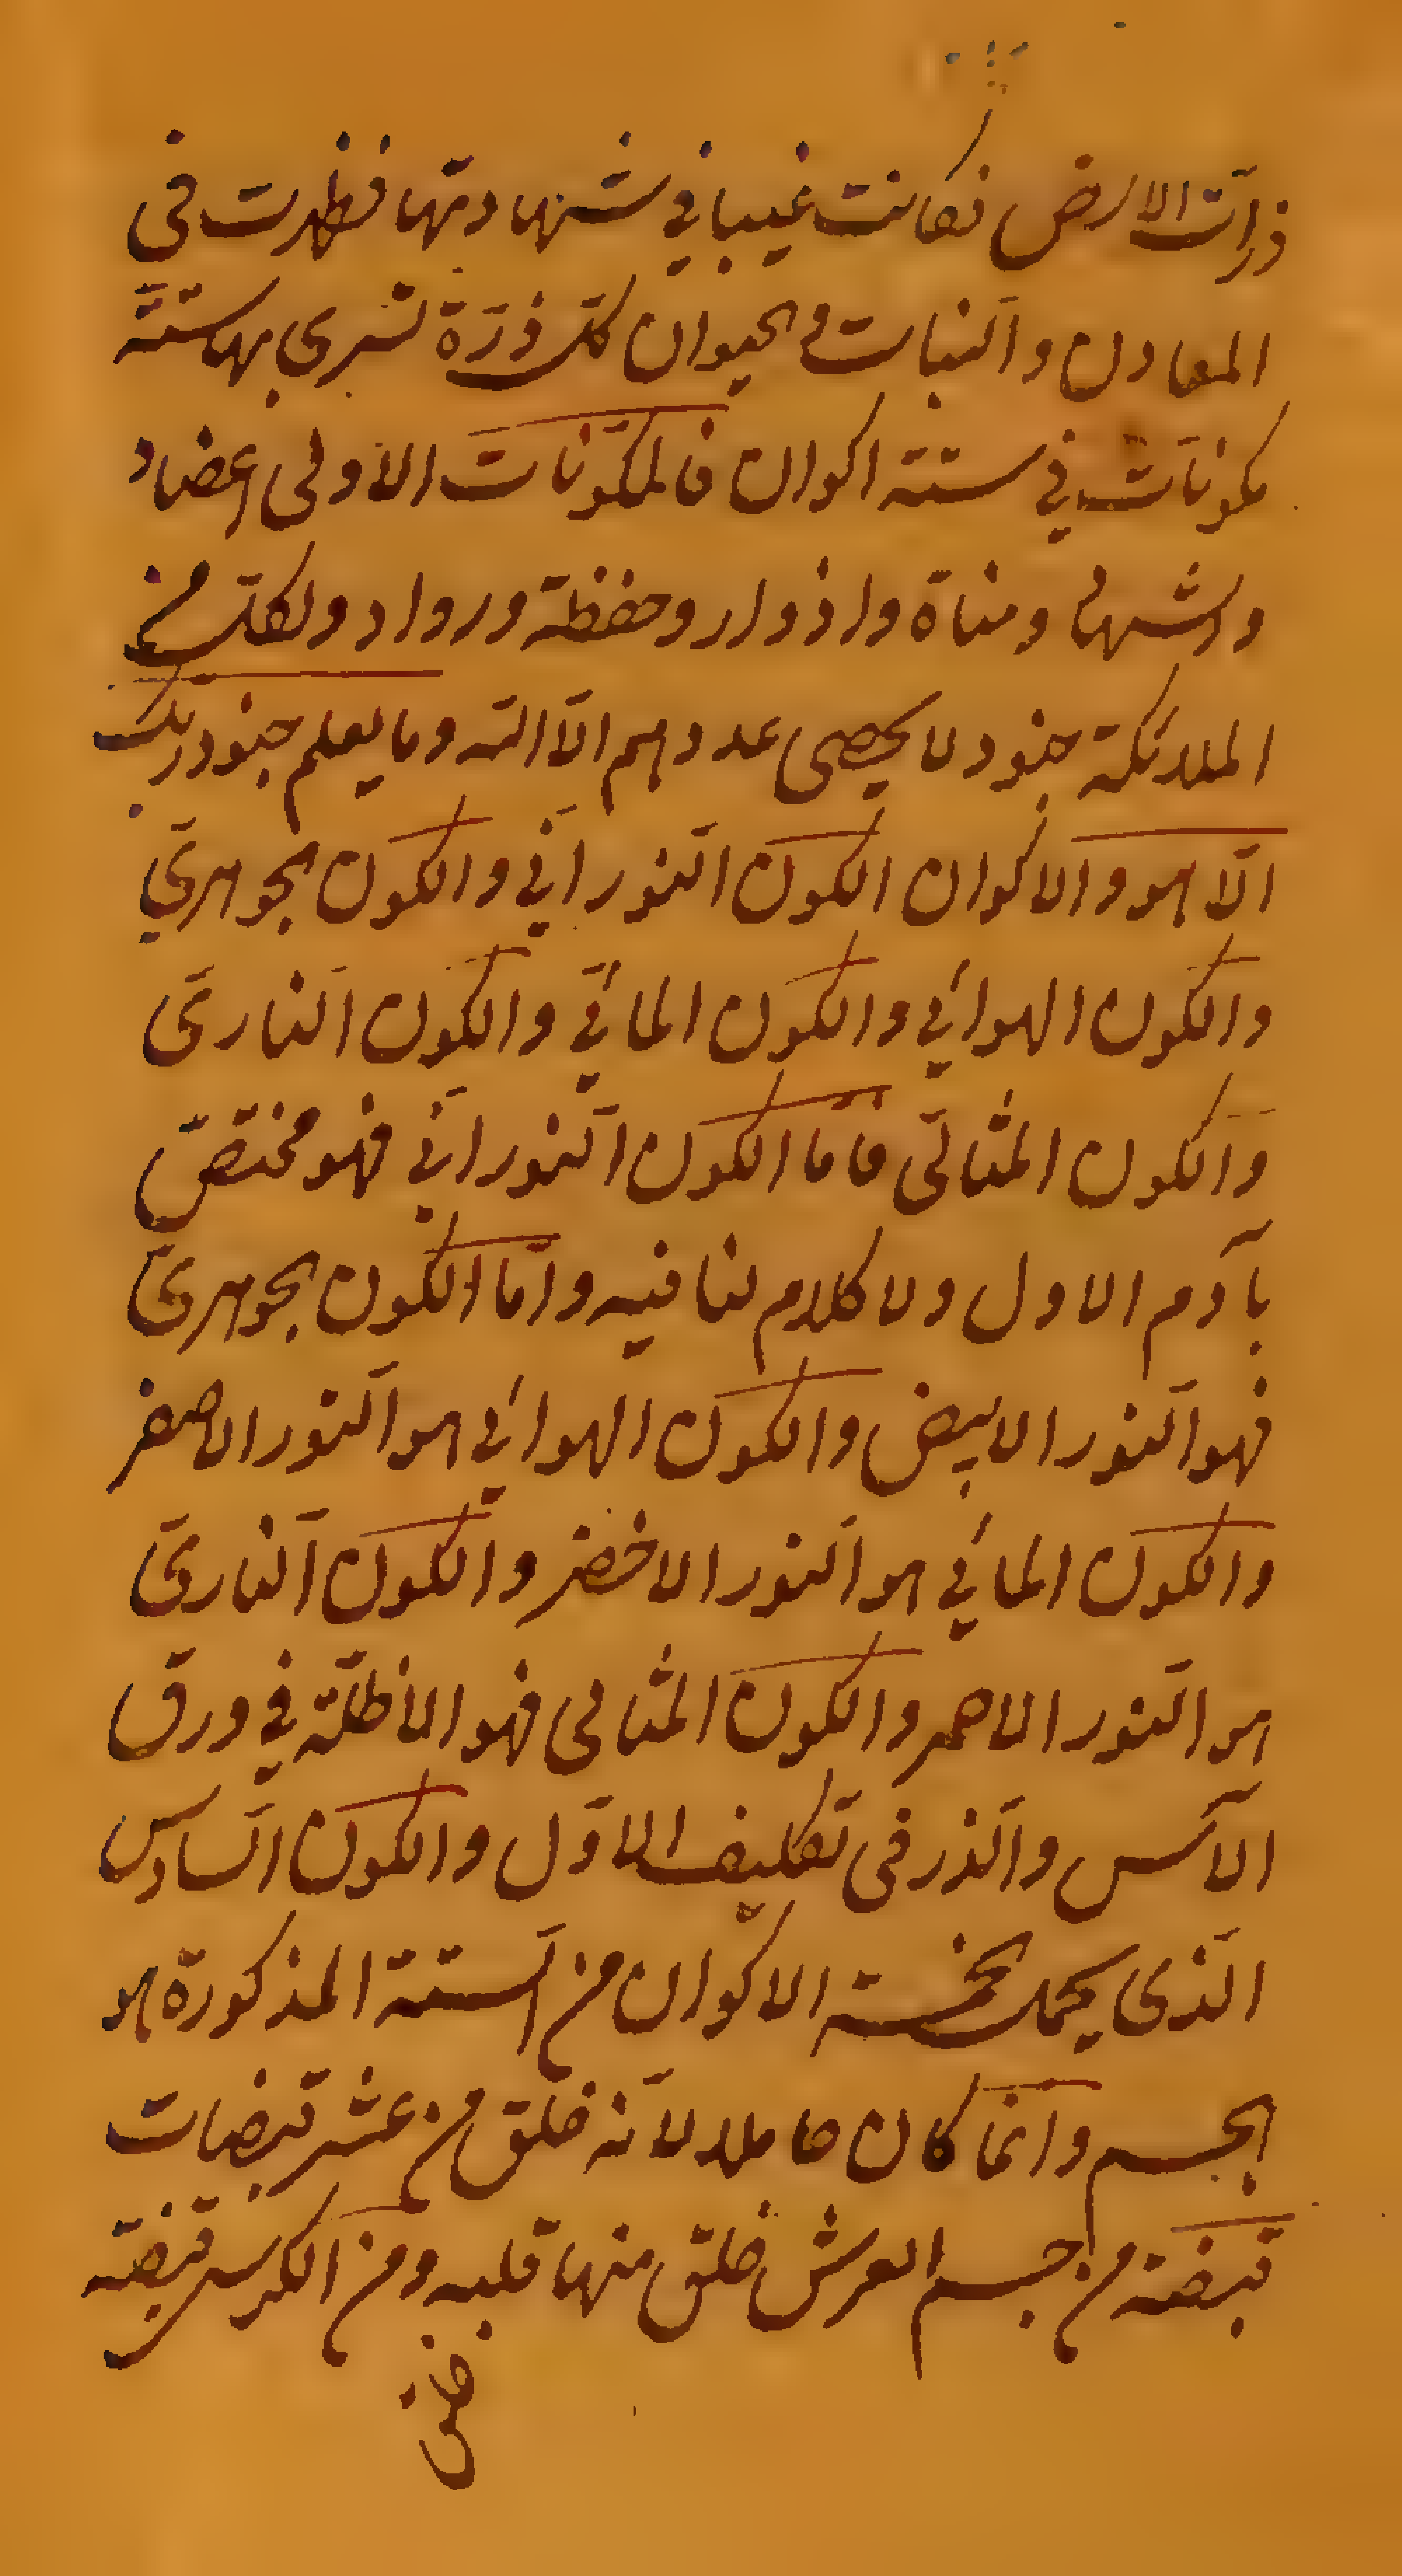 ذرات الارض فكانت غيبا في شهادتها فظهرت في
المعادن والنبات والحيوان كل ذرة تسري بها ستة
مكونات في ستة اكوان فالمكونات الاولى اعضاد
واشهاد ومناة واذواد وحفظة ورواد ولكل من
الملائكة جنود لا يحصى عددهم الّا الله وما يعلم جنود ربك
الّا هو والاكوان الكون النوراني والكون الجوهري
والكون الهوائي والكون المائي والكون الناري
والكون المثالي فامّا الكون النوراني فهو مختصّ
بآدم الاول ولا كلام لنا فيه وامّا الكون الجوهري
فهو النور الابيض والكون الهوائي هو النور الاصفر
والكون المائي هو النور الاخضر والكون الناري
هو النور الاحمر والكون المثالي فهو الاظلّة في ورق
الآس والذر في تكليف الاوّل والكون السادس
الذي يحمل الخمسة الاكوان من الستة المذكورة هو
الجسم وانما كان حاملا لانه خلق من عشر قبضات
قبضة من جسم العرش خلق منها قلبه ومن الكرسي قبضة
خلق